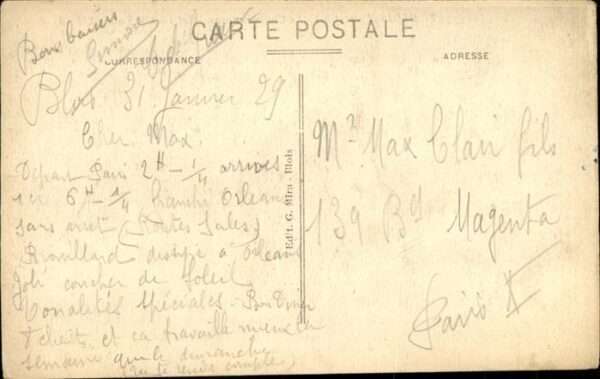 Bons baisers
Simone
CARTE POSTALE
CORRESPONDANCE
ADRESSE
Blois 31 Janvier 29
Cher Max
Départ Paris 2H - 1/4 arrivés
6H - 1/4 franchi Orléans
sans arrêt (Routes Sales)
Brouillard dissipé à Orléans
Joli coucher de Soleil
Tonalités Spéciales - Bon Diner
et ca travaille mieux la
semaine que le dimanche
(tu te rends compte)
Edit. G. Mira - Blois
Mr Max Clair fils
139 Bd Magenta
Paris X